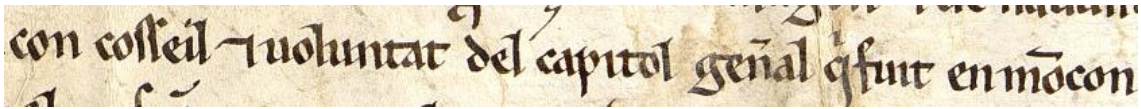 con cosseil ⁊ uoluntat del capitol gen̄al q̇ fuit en mōcon